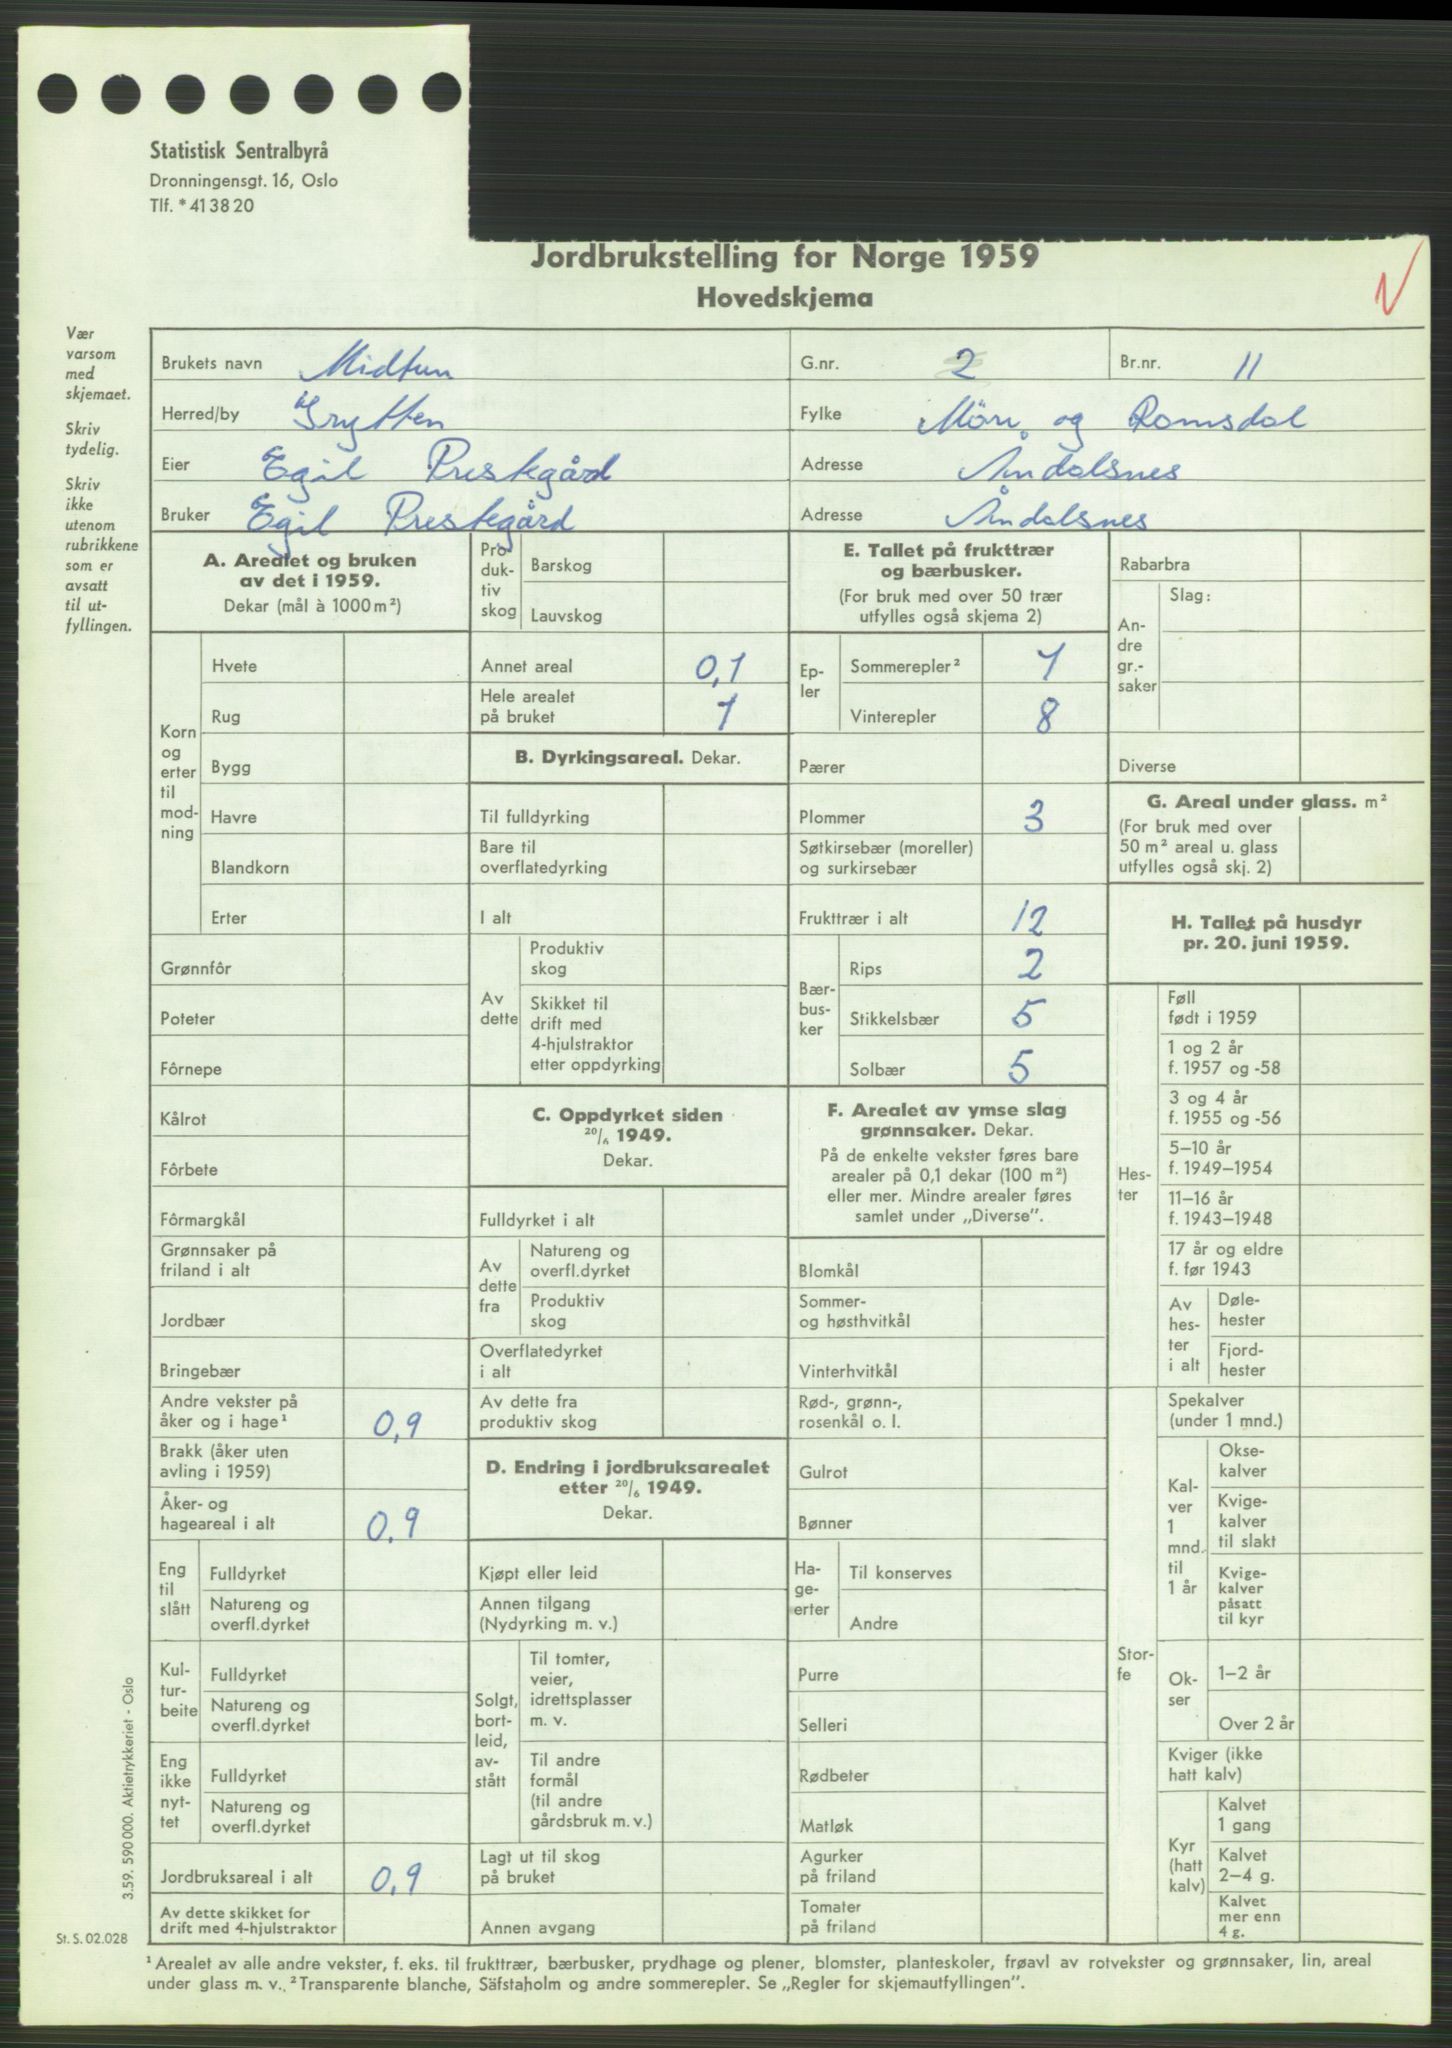 Statistisk Sentralbyrå
Dronningensgt. 16, Oslo
Tlf. * 41 38 20
Jordbrukstelling for Norge 1959
Hovedskjema
Vær
varsom
med
skjemaet.
Skriv
tydelig.
Skriv
ikke
utenom
rubrikkene
som er
avsatt
til ut-
fyllingen.
Brukets navn Midtun G.nr. 2 Br.nr. 11
Herred/by Grytten Fylke Möre og Romsdal
Eier Egil Prestegård Adresse Åndalsnes
Bruker Egil Prestegård Adresse Åndalsnes
A. Arealet og bruken
av det i 1959.
Dekar (mål à 1000 m²)
Korn
og
erter
til
mod-
ning
Hvete
Rug
Bygg
Havre
Blandkorn
Erter
Grønnfôr
Poteter
Fôrnepe
Kålrot
Fôrbete
Fôrmargkål
Grønnsaker på
friland i alt
Jordbær
Bringebær
Andre vekster på
åker og i hage¹ 0,9
Brakk (åker uten
avling i 1959)
Åker- og
hageareal i alt 0,9
Eng
til
slått
Fulldyrket
Natureng og
overfl.dyrket
Kul-
tur-
beite
Fulldyrket
Natureng og
overfl.dyrket
Eng
ikke
nyt-
tet
Fulldyrket
Natureng og
overfl.dyrket
Jordbruksareal i alt 0,9
Av dette skikket for
drift med 4-hjulstraktor
Pro
duk-
tiv
skog
Barskog
Lauvskog
Annet areal 0,1
Hele arealet
på bruket 1
B. Dyrkingsareal. Dekar.
Til fulldyrking
Bare til
overflatedyrking
I alt
Av
dette
Produktiv
skog
Skikket til
drift med
4-hjulstraktor
etter oppdyrking
C. Oppdyrket siden
20/6 1949.
Dekar.
Fulldyrket i alt
Av
dette
fra
Natureng og
overfl.dyrket
Produktiv
skog
Overflatedyrket
i alt
Av dette fra
produktiv skog
D. Endring i jordbruksarealet
etter 20/6 1949.
Dekar.
Kjøpt eller leid
Annen tilgang
(Nydyrking m. v.)
Solgt,
bort-
leid,
av-
stått
Til tomter,
veier,
idrettsplasser
m. v.
Til andre
formål
(til andre
gårdsbruk m. v.)
Lagt ut til skog
på bruket
Annen avgang
E. Tallet på frukttrær
og bærbusker.
(For bruk med over 50 trær
utfylles også skjema 2)
Ep-
ler
Sommerepler² 1
Vinterepler 8
Pærer
Plommer 3
Søtkirsebær (moreller)
og surkirsebær
Frukttrær i alt 12
Bær-
bus-
ker
Rips 2
Stikkelsbær 5
Solbær 5
F. Arealet av ymse slag
grønnsaker. Dekar.
På de enkelte vekster føres bare
arealer på 0,1 dekar (100 m²)
eller mer. Mindre arealer føres
samlet under „Diverse”.
Blomkål
Sommer-
og høsthvitkål
Vinterhvitkål
Rød-, grønn-,
rosenkål o. l.
Gulrot
Bønner
Ha-
ge-
erter
Til konserves
Andre
Purre
Selleri
Rødbeter
Matløk
Agurker
på friland
Tomater
på friland
Rabarbra
An-
dre
gr.-
saker
Slag:
Diverse
G. Areal under glass. m²
(For bruk med over
50 m² areal u. glass
utfylles også skj. 2)
H. Tallet på husdyr
pr. 20. juni 1959.
Hes-
ter
Føll
født i 1959
1 og 2 år
f. 1957 og -58
3 og 4 år
f. 1955 og -56
5–10 år
f. 1949–1954
11–16 år
f. 1943–1948
17 år og eldre
f. før 1943
Av
hes-
ter
i alt
Døle-
hester
Fjord-
hester
Stor-
fe
Spekalver
(under 1 mnd.)
Kal-
ver
1
mnd.
til
1 år
Okse-
kalver
Kvige-
kalver
til slakt
Kvige-
kalver
påsatt
til kyr
Ok-
ser
1–2 år
Over 2 år
Kviger (ikke
hatt kalv)
Kyr
(hatt
kalv)
Kalvet
1 gang
Kalvet
2–4 g.
Kalvet
mer enn
4 g.
3.59. 590 000. Aktietrykkeriet - Oslo
St. S. 02.028
¹ Arealet av alle andre vekster, f. eks. til frukttrær, bærbusker, prydhage og plener, blomster, planteskoler, frøavl av rotvekster og grønnsaker, lin, areal
under glass m. v. ² Transparente blanche, Säfstaholm og andre sommerepler. Se „Regler for skjemautfyllingen”.